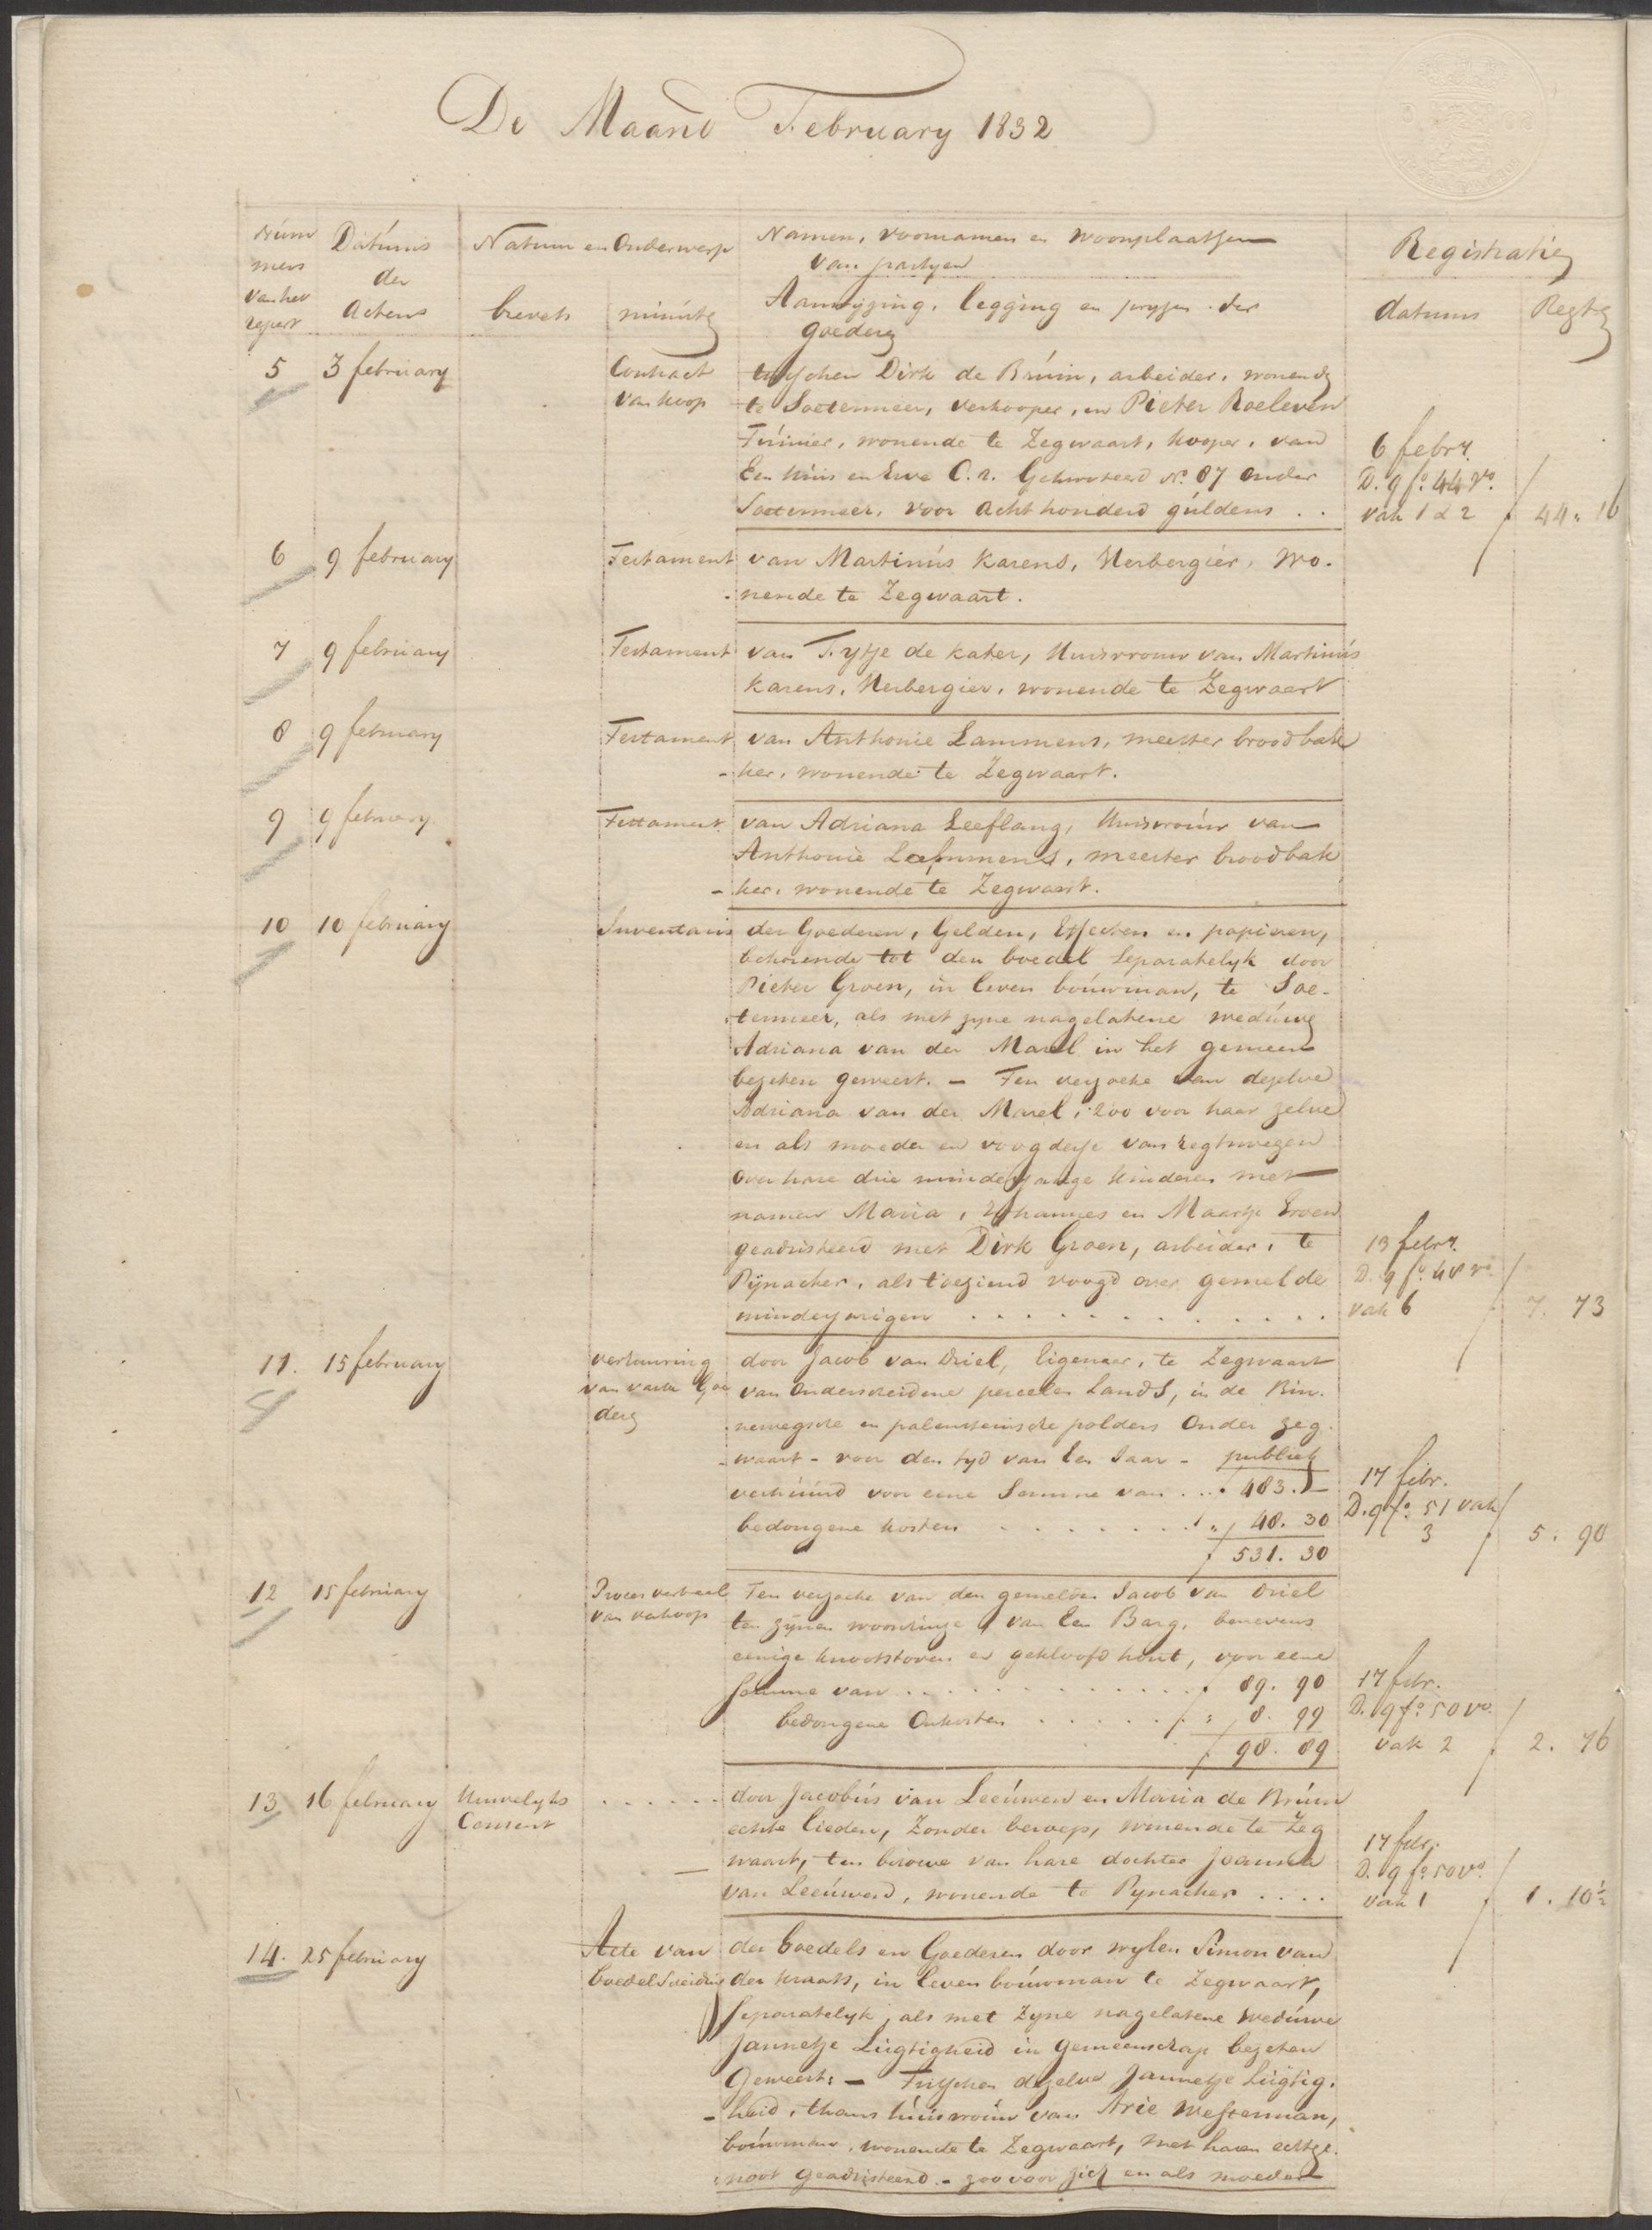 De Maand February 1832
Num
mers
van het
repert
Datums
der
Actens
Natuur en Onderwerp
brevets
minúte
Namen, voornamen en woonplaatsen
van partyen
Aanwyzing, legging en pryzen der
goederen
Registratie
datums
Regten
5 3 february
Contract
van koop
tusschen Dirk de Bruin, arbeider, wonende
te Soetermeer, verkooper, en Pieter Roeleven
Turnier, wonende te Zegwaart, kooper, van
Een huis en Erve C.a. Gekwoteerd No. 87 onder
Soetermeer, voor acht honderd guldens . .
6 febry.
D. 9 fo. 44 Vo.
vak 1 & 2 f 44. 16
6 9 february
Testament van Martinus Karens, Herbergier, wo-
nende te Zegwaart.
7 9 february
Testament van Tytje de Kater, Huisvrouw van Martinus
Karens, Herbergier, wonende te Zegwaart
8 9 february
Testament van Anthonie Lammens, meester broodbak
ker, wonende te Zegwaart.
9 9 february
Testament van Adriana Leeflang, Huisvrouw van
Anthonie Lammens, meester broodbak
ker, wonende te Zegwaart.
10 10 february
Inventaris der Goederen, Gelden, Effecten en papieren,
behorende tot den boedel Separatelyk door
Pieter Groen, in leven bouwman, te Soe-
termeer, als met zyne nagelatene weduwe
Adriana van der Marel in het gemeen
bezeten geweest. - Ten verzoeke van dezelve
Adriana van der Marel, zoo voor haar zelve
en als moeder en voogdesse van regtswegen
over hare drie minderjarige kinderen met
namen Maria, Johannes en Maartje Groen
geadsisteerd met Dirk Groen, arbeider, te
Pijnacker, als toeziend voogd over gemelde
minderjarigen . . . . . . . . . . . .
13 febry.
D. 9 fo. 48 ro
vak 6 f 7. 73
11. 15 february
verhuuring
van vaste Goe
deren
door Jacob van Driel, Eigenaar, te Zegwaart
van onderscheidene perceelen Lands, in de Bin-
newegsche en palensteinsche polders onder Zeg-
waart - voor den tyd van een Jaar - publiek
verhuurd voor eene Somme van . . . f 483. -
bedongene kosten . . . . . . . . " 48. 30
f 531. 30
17 febr.
D. 9 fo. 51 vak
3 f 5. 90
12 15 february
Proces verbaal
van verkoop
Ten verzoeke van den gemelden Jacob van Driel
ten zynen woonhuize van een Barg, benevens
eenige knootstoven en gekloofd hout, voor eene
somme van . . . . . . . . . . . f 89. 90
bedongene Onkosten . . . . . . " 8. 99
f 98. 89
17 febr.
D. 9 fo. 50 vo.
vak 2 f 2. 76
13 16 february Huwelyks
Consent
. . . . . . door Jacobus van Leeuwen en Maria de Bruin
echte lieden, zonder beroep, wonende te Zeg
waart, ten behoeve van hare dochter Joanna
van Leeuwen, wonende te Pynacker . . . .
17 febr.
D. 9 fo 50 vo.
vak 1 f 1. 10½
14. 25 february
Acte van
boedel Scheiding
der boedels en Goederen door wylen Simon van
der Kraats, in leven bouwman te Zegwaart,
Separatelyk, als met Zyne nagelatene weduwe
Jannetje Lugtigheid in gemeenschap bezeten
Geweest: - Tusschen dezelve Jannetje Lugtig-
heid, thans huisvrouw van Arie Westerman,
bouwman, wonende te Zegwaart, met haren echtge-
noot geadsisteerd - zoo voor zich en als moeder